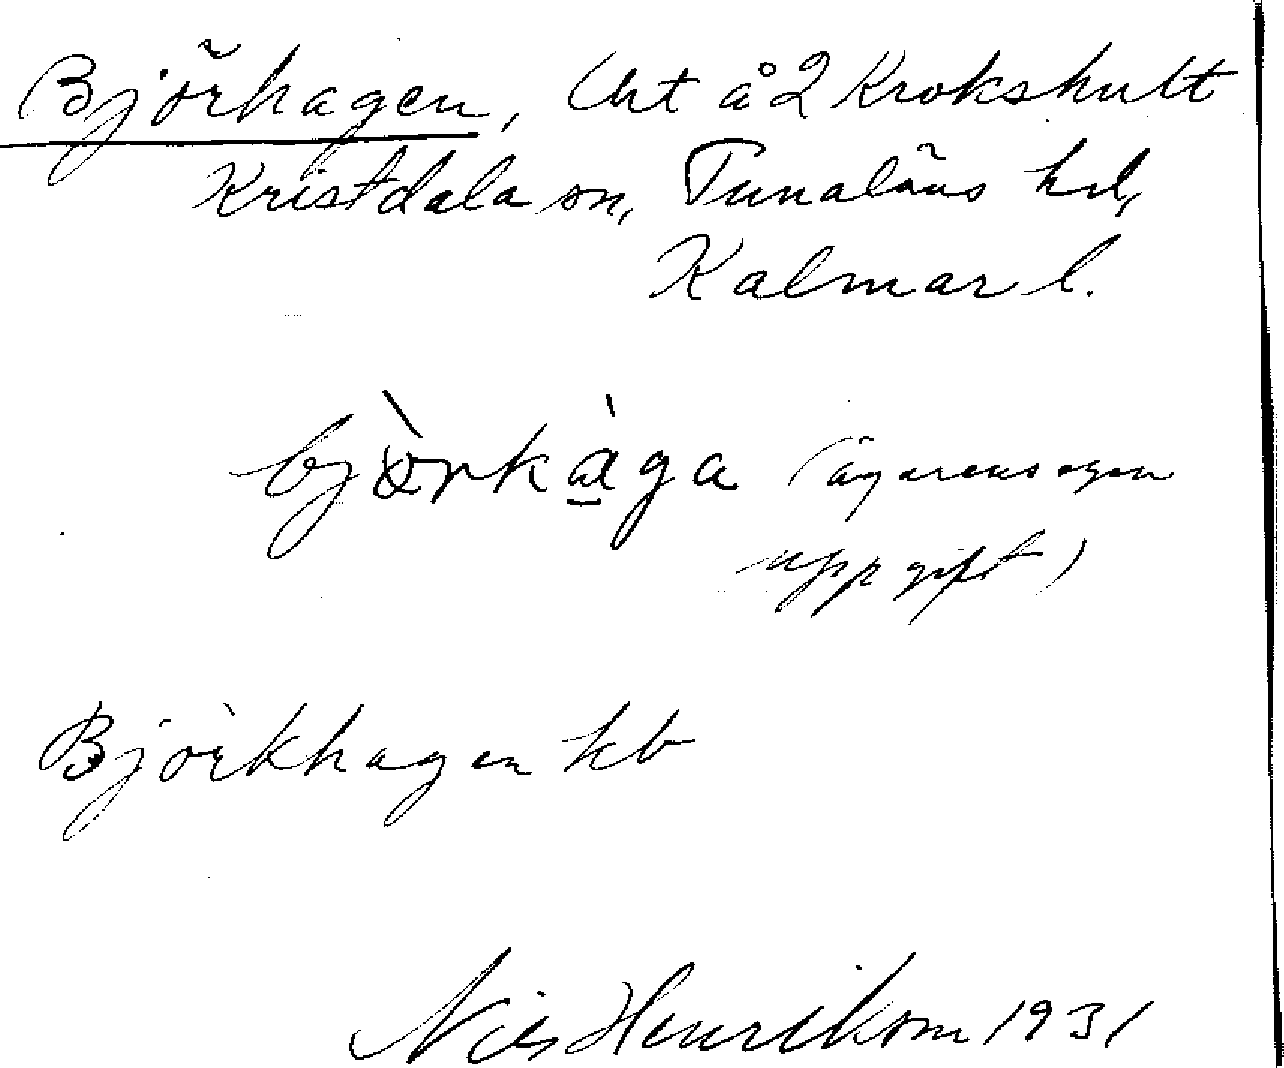 Björhagen, Urt å 2 Krokshult
Kristdala sn, Tunaläns hd,
Kalmar l.
bjòrkàga (ägarens egen
uppgift)
Björkhagen kb
Nils Henrikson 1931